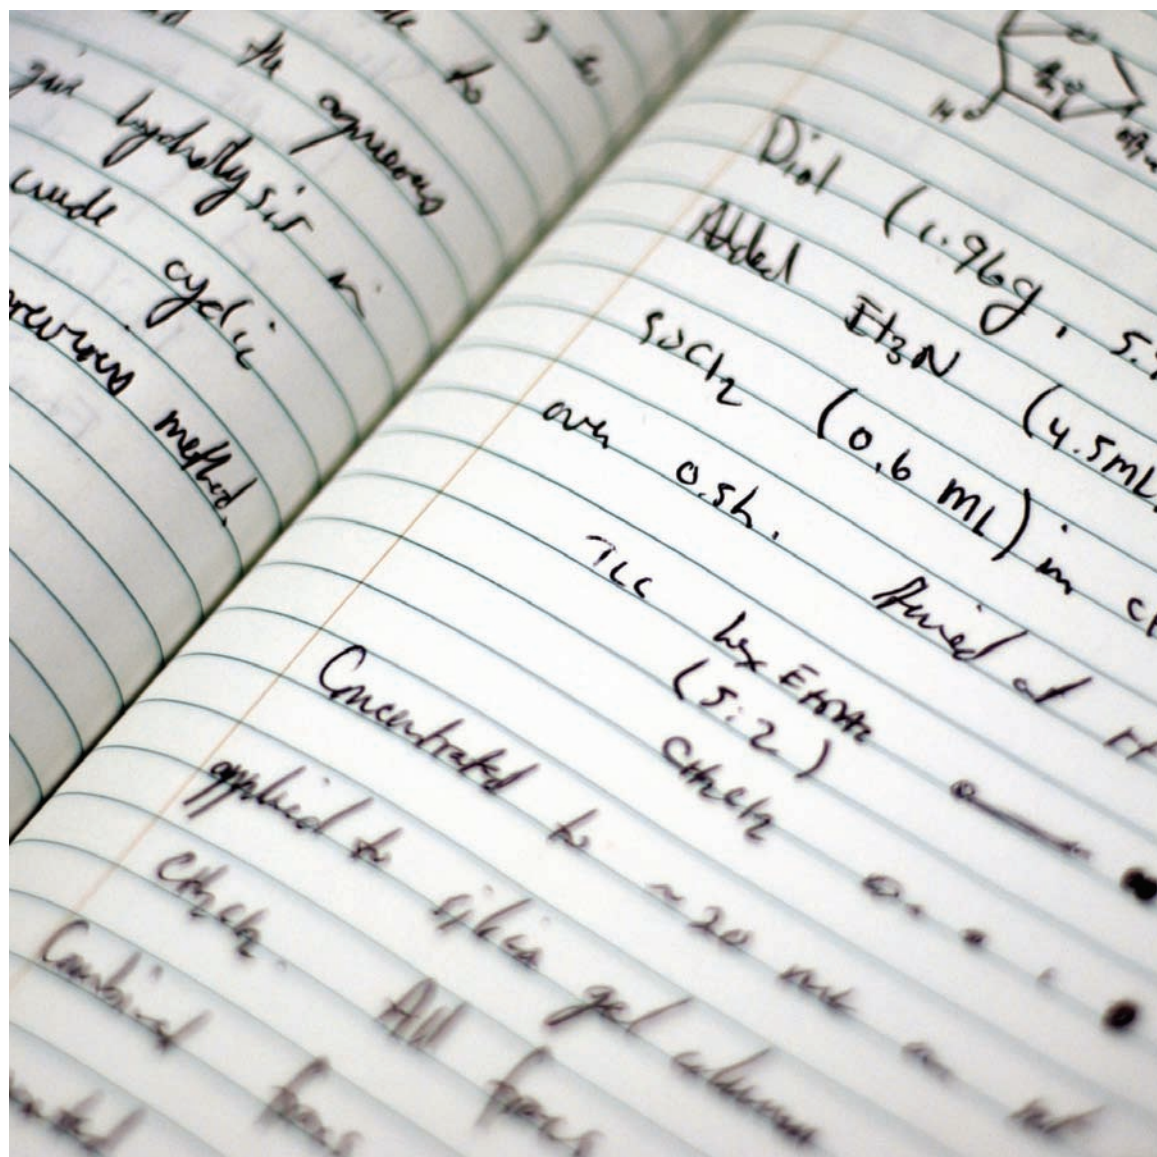 to
the aqueous
give hydrolysis
crude cyclic
method.
Diol (1.96g, 5.
Added Et3N (4.5mL
SOCl2 (0.6 mL) in
over 0.5h. Stirred at
TLC hex EtOAc
(5:2)
CH2Cl2
Concentrated to ~20 mL
applied to silica gel column
CH2Cl2. All fracs
Combined fracs